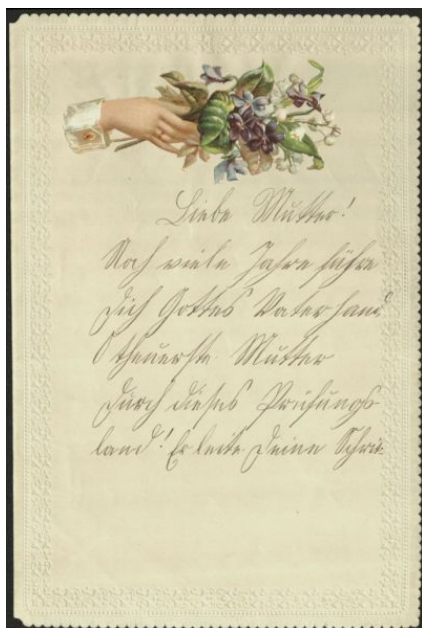 Liebe Mutter!
Noch viele Jahre führe
Dich Gottes Vaterhand
O theuerste Mutter
Durch dieses Prüfungs
land! Er leite Deine Schrit-